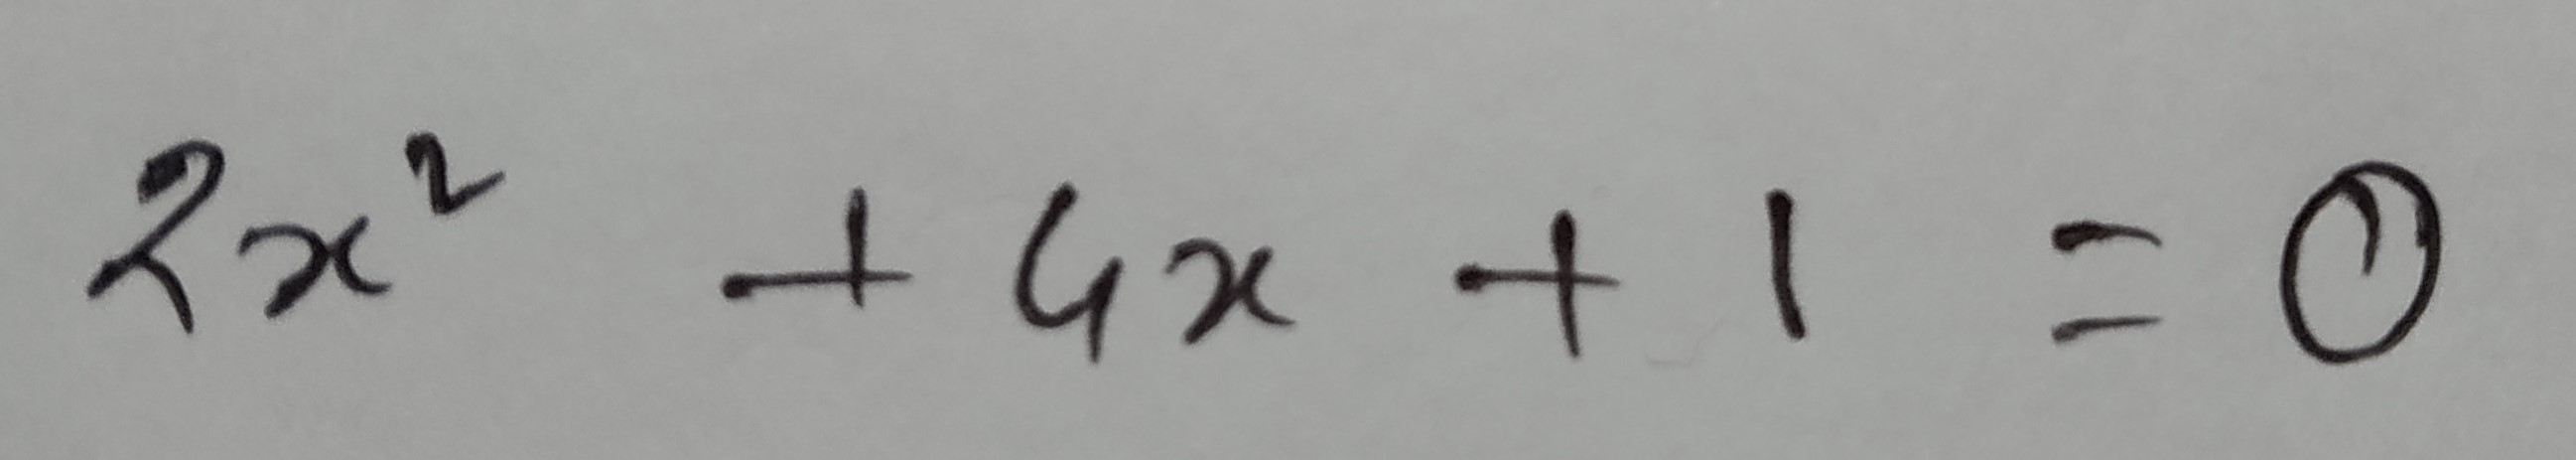 2x² + 4x + 1 = 0